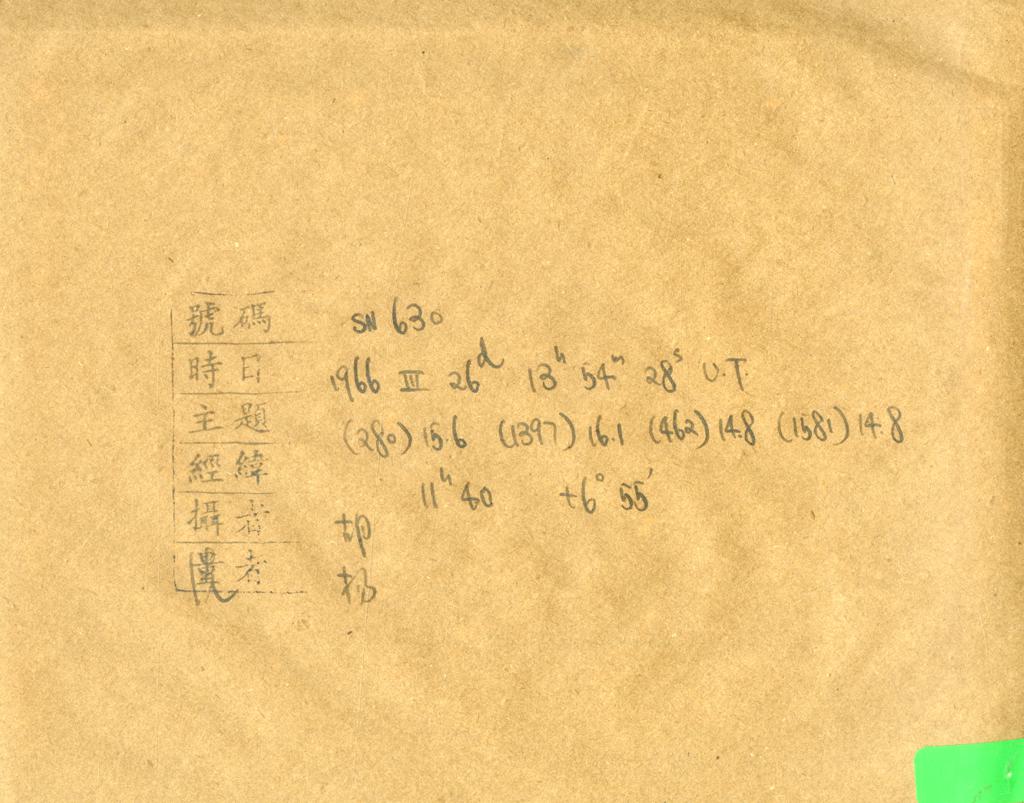 號碼 SN 630
時日 1966 III 26d 13h 54m 28s U.T.
主題 (280) 15.6 (1397) 16.1 (462) 14.8 (1581) 14.8
經緯 11h 40 +6° 55′
攝者 胡
者 杨